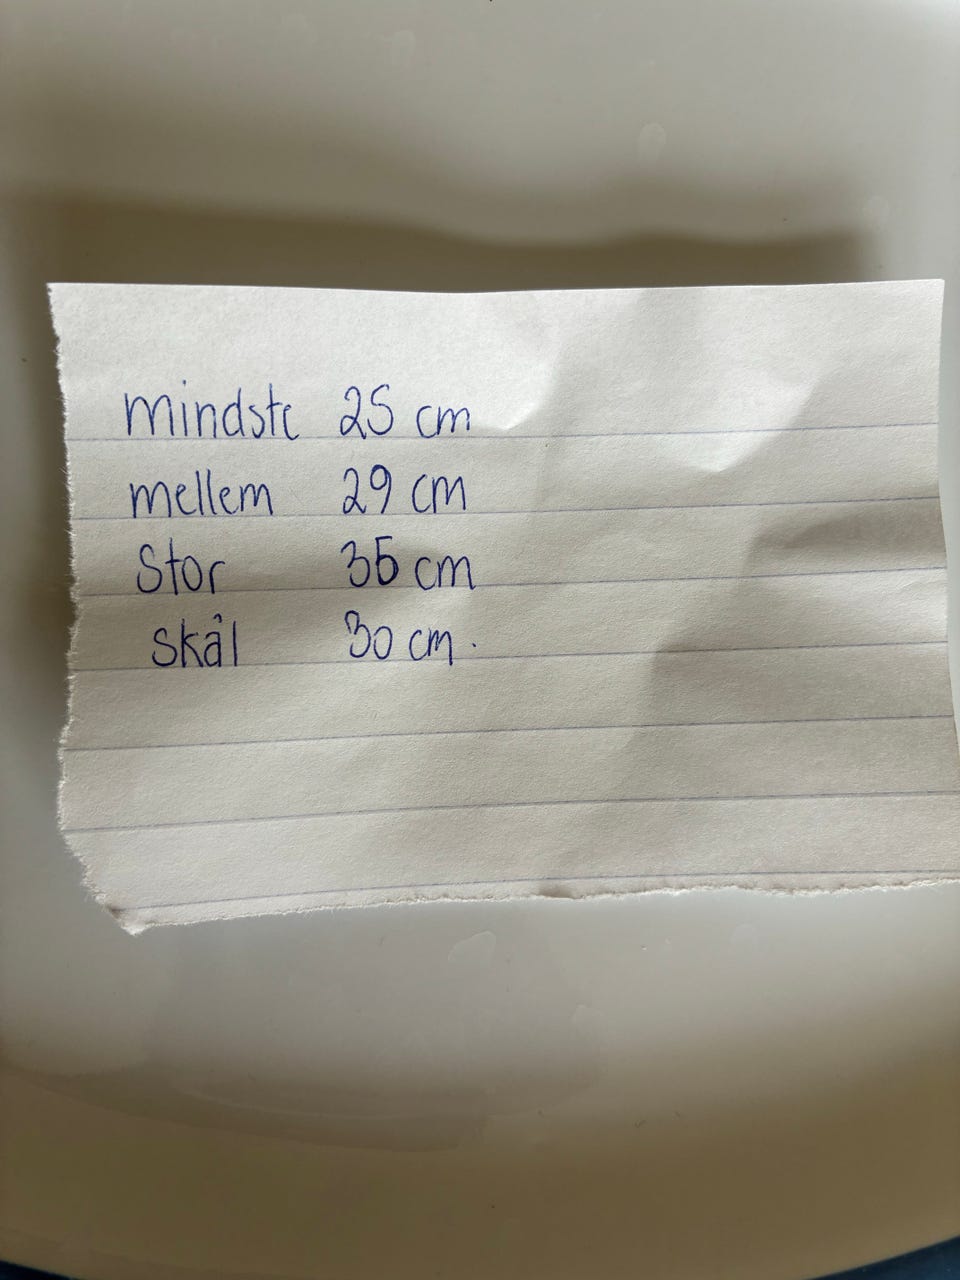 mindste 25 cm
mellem 29 cm
Stor 36 cm
skål 30 cm.